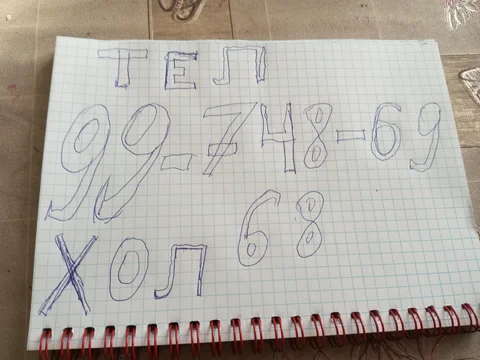 ТЕЛ
99-748-69
68
ХОЛ